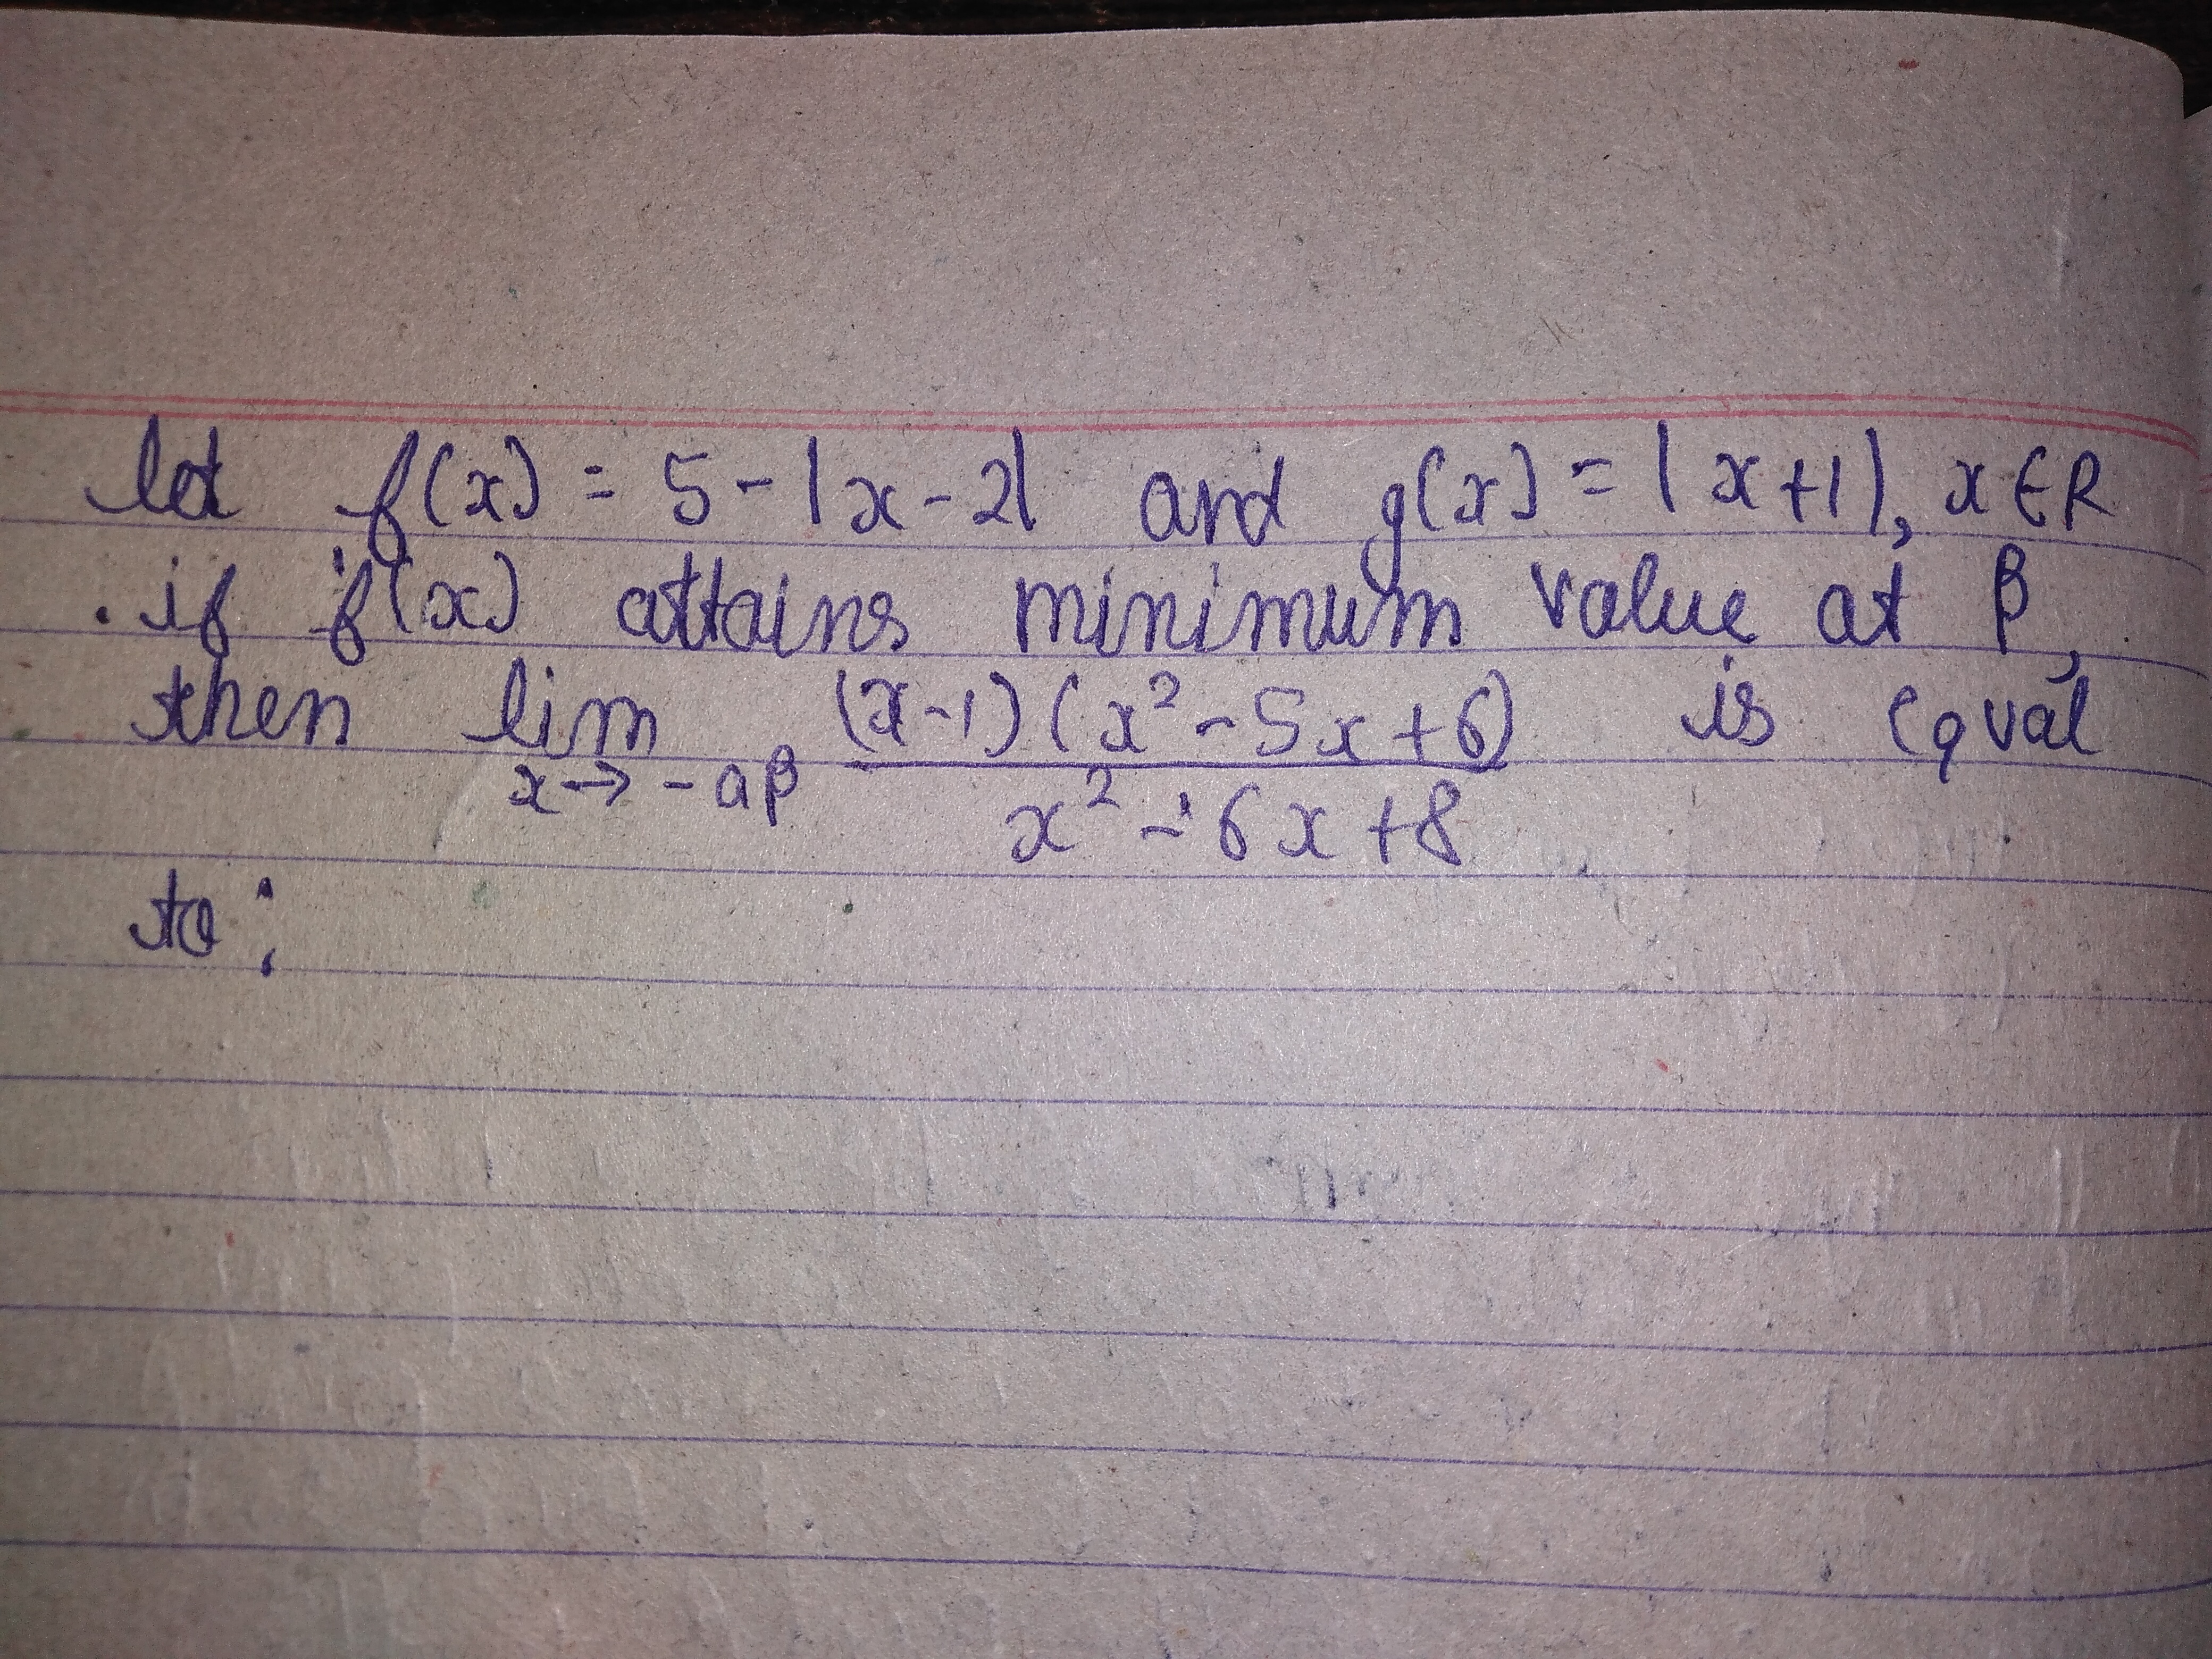 let f(x) = 5 - |x - 2| and g(x) = |x + 1|, x ∈ R
. if f(x) attains minimum value at β,
then lim x→ -aβ (x-1)(x² - 5x + 6) / x² - 6x + 8 is equal
to :